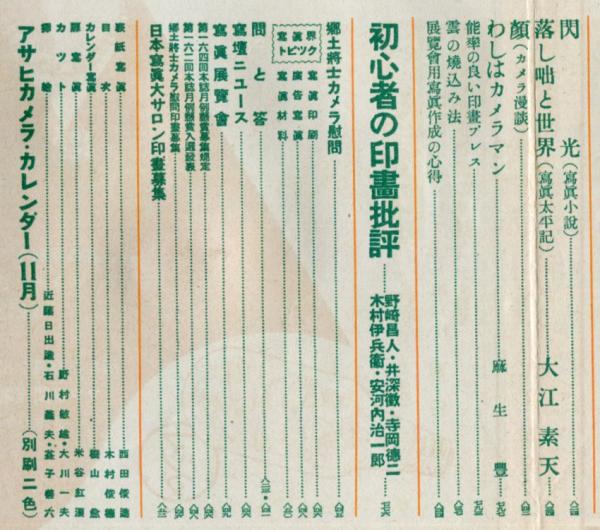 閃光（寫眞小說）
落し咄と世界（寫眞太平記） 大江素天
顏（カメラ漫談）
わしはカメラマン 麻生豐
能率の良い印畫プレス
雲の燒込み法
展覽會用寫眞作成の心得
初心者の印畫批評 野崎昌人・井深徵・寺岡德二 木村伊兵衞・安河內治一郎
鄕土將士カメラ慰問
寫眞印刷
廣告寫眞
寫眞材料
問と答
寫壇ニュース
寫眞展覽會
第一六四回本誌月例懸賞募集規定
第一六二回本誌月例懸賞入選發表
鄕土將士カメラ慰問印畫募集
日本寫眞大サロン印畫募集
表紙寫眞 西田俊造
目次 木村俊德
カレンダー寫眞
扉寫眞
カット 野村敏雄・大川一夫
アサヒカメラ・カレンダー（11月） （別刷二色）